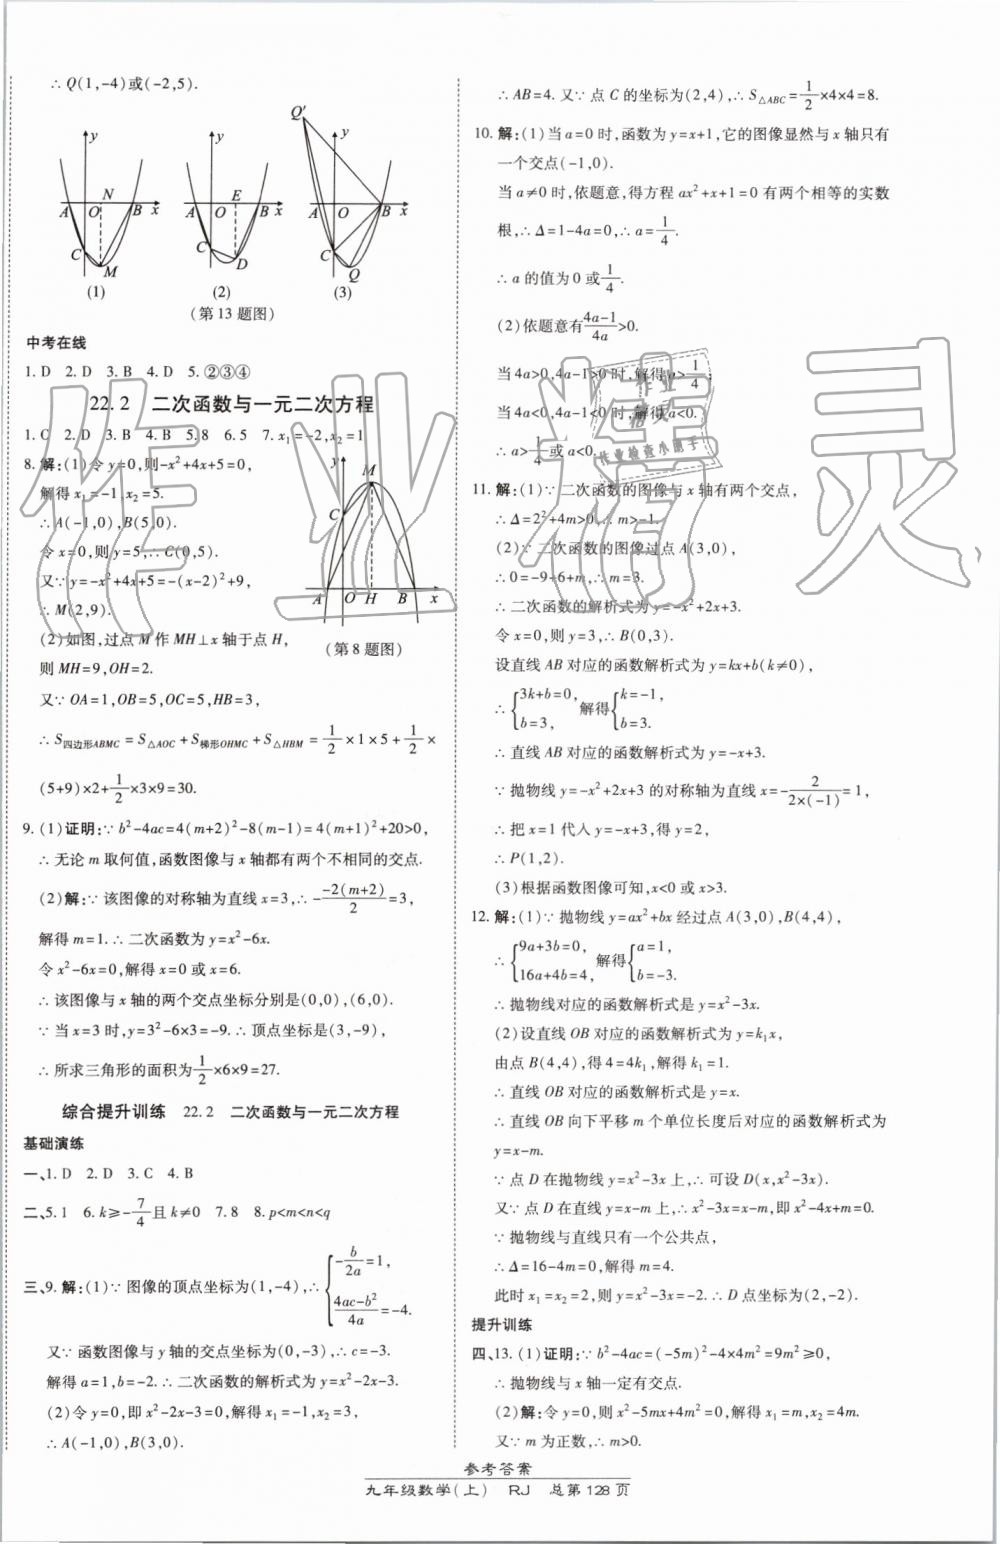 ∴Q(1,-4)或(-2,5).
y
N
A O B x
C
M
(1)
y
E
A O B x
C
D
(2)
Q′
y
A O B x
C
Q
(3)
(第13题图)
中考在线
1. D 2. D 3. B 4. D 5. ②③④
22.2 二次函数与一元二次方程
1. C 2. D 3. B 4. B 5. 8 6. 5 7. x₁=-2,x₂=1
8. 解:(1)令y=0,则-x²+4x+5=0,
解得x₁=-1,x₂=5.
∴A(-1,0),B(5,0).
令x=0,则y=5,∴C(0,5).
又∵y=-x²+4x+5=-(x-2)²+9,
∴M(2,9).
(2)如图,过点M作MH⊥x轴于点H,
则MH=9,OH=2.
又∵OA=1,OB=5,OC=5,HB=3,
y
M
C
A O H B x
(第8题图)
∴S四边形ABMC=S△AOC+S梯形OHMC+S△HBM=1/2×1×5+1/2×
(5+9)×2+1/2×3×9=30.
9. (1)证明:∵b²-4ac=4(m+2)²-8(m-1)=4(m+1)²+20>0,
∴无论m取何值,函数图像与x轴都有两个不相同的交点.
(2)解:∵该图像的对称轴为直线x=3,∴-(-2(m+2))/2=3,
解得m=1.∴二次函数为y=x²-6x.
令x²-6x=0,解得x=0或x=6.
∴该图像与x轴的两个交点坐标分别是(0,0),(6,0).
∵当x=3时,y=3²-6×3=-9.∴顶点坐标是(3,-9),
∴所求三角形的面积为1/2×6×9=27.
综合提升训练 22.2 二次函数与一元二次方程
基础演练
一、1. D 2. D 3. C 4. B
二、5. 1 6. k≥-7/4且k≠0 7. 8 8. p<m<n<q
三、9. 解:(1)∵图像的顶点坐标为(1,-4),∴{-b/2a=1,
(4ac-b²)/4a=-4.
又∵函数图像与y轴的交点坐标为(0,-3),∴c=-3.
解得a=1,b=-2.∴二次函数的解析式为y=x²-2x-3.
(2)令y=0,即x²-2x-3=0,解得x₁=-1,x₂=3,
∴A(-1,0),B(3,0).
∴AB=4.又∵点C的坐标为(2,4),∴S△ABC=1/2×4×4=8.
10. 解:(1)当a=0时,函数为y=x+1,它的图像显然与x轴只有
一个交点(-1,0).
当a≠0时,依题意,得方程ax²+x+1=0有两个相等的实数
根,∴Δ=1-4a=0,∴a=1/4.
∴a的值为0或1/4.
(2)依题意有(4a-1)/4a>0.
当4a>0,4a-1>0时,解得a>1/4;
当4a<0,4a-1<0时,解得a<0.
∴a>1/4或a<0.
11. 解:(1)∵二次函数的图像与x轴有两个交点,
∴Δ=2²+4m>0,∴m>-1.
(2)∵二次函数的图像过点A(3,0),
∴0=-9+6+m,∴m=3.
∴二次函数的解析式为y=-x²+2x+3.
令x=0,则y=3,∴B(0,3).
设直线AB对应的函数解析式为y=kx+b(k≠0),
∴{3k+b=0, 解得{k=-1,
b=3, b=3.
∴直线AB对应的函数解析式为y=-x+3.
∵抛物线y=-x²+2x+3的对称轴为直线x=-2/(2×(-1))=1,
∴把x=1代入y=-x+3,得y=2,
∴P(1,2).
(3)根据函数图像可知,x<0或x>3.
12. 解:(1)∵抛物线y=ax²+bx经过点A(3,0),B(4,4),
∴{9a+3b=0, 解得{a=1,
16a+4b=4, b=-3.
∴抛物线对应的函数解析式是y=x²-3x.
(2)设直线OB对应的函数解析式为y=k₁x,
由点B(4,4),得4=4k₁,解得k₁=1.
∴直线OB对应的函数解析式是y=x.
∴直线OB向下平移m个单位长度后对应的函数解析式为
y=x-m.
∵点D在抛物线y=x²-3x上,∴可设D(x,x²-3x).
又∵点D在直线y=x-m上,∴x²-3x=x-m,即x²-4x+m=0.
∵抛物线与直线只有一个公共点,
∴Δ=16-4m=0,解得m=4.
此时x₁=x₂=2,则y=x²-3x=-2.∴D点坐标为(2,-2).
提升训练
四、13. (1)证明:∵b²-4ac=(-5m)²-4×4m²=9m²≥0,
∴抛物线与x轴一定有交点.
(2)解:令y=0,则x²-5mx+4m²=0,解得x₁=m,x₂=4m.
又∵m为正数,∴m>0.
参考答案
九年级数学(上) RJ 总第128页
作业精灵
作业
精灵
作业检查小助手